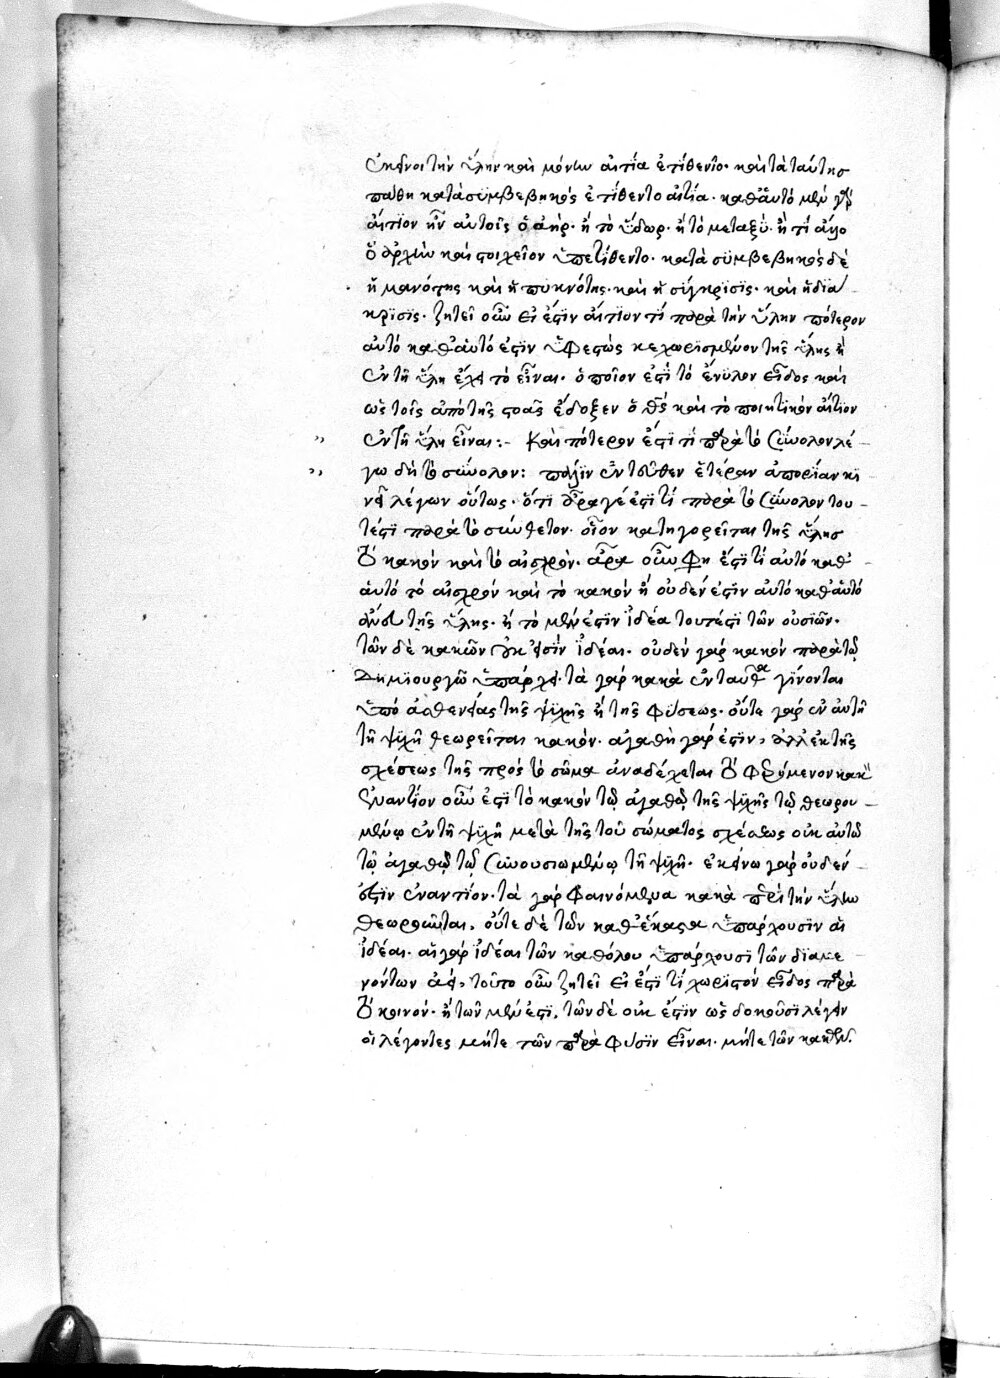 ἐκεῖνοι τὴν ὕλην καὶ μόνην αἰτία ἐτίθεντο. καὶ τὰ ταύτης
πάθη κατὰ συμβεβηκὸς ἐτίθεντο αἴτια. καθ' αὑτὸ μὲν γὰρ
αἴτιον ἦν αὐτοῖς ὁ ἀὴρ. ἢ τὸ ὕδωρ. ἢ τὸ μεταξὺ. ἢ τὶ ἄλλο
ὃ ἀρχὴν καὶ στοιχεῖον ὑπετίθεντο. κατὰ συμβεβηκὸς δὲ
ἡ μανότης καὶ ἡ πυκνότης. καὶ ἡ σύγκρισις. καὶ ἡ διά
κρισις. ζητεῖ οὖν εἰ ἔστιν αἴτιον τί παρὰ τὴν ὕλην πότερον
αὐτὸ καθ' αὑτό ἐστιν ὑφεστὼς κεχωρισμένον τῆς ὕλης ἢ
ἐν τῇ ὕλη ἔχει τὸ εἶναι. ὁποῖον ἐστὶ τὸ ἔνυλον εἶδος καὶ
ὡς τοῖς ἀπὸ τῆς στοᾶς ἔδοξεν ὁ θεὸς καὶ τὸ ποιητικὸν αἴτιον
ἐν τῇ ὕλη εἶναι:- Καὶ πότερον ἔστι τὶ παρὰ τὸ σύνολον λέ
γω δὴ τὸ σύνολον: πάλιν ἐντεῦθεν ἑτέραν ἀπορίαν κι
νεῖ λέγων οὕτως. ὅτι ἆρα γέ ἐστι τὶ παρὰ τὸ σύνολον του
τέστι παρὰ τὸ σύνθετον. οἷον κατηγορεῖται τῆς ὕλης
τὸ κακὸν καὶ τὸ αἰσχρὸν. ἆρα οὖν φη ἔστι τὶ αὐτὸ καθ'
αὑτὸ τὸ αἰσχρὸν καὶ τὸ κακὸν ἢ οὐδέν ἐστιν αὐτὸ καθ' αὑτὸ
ἄνευ τῆς ὕλης. ἢ τὸ μέν ἐστιν ἰδέα τουτέστι τῶν οὐσιῶν.
τῶν δὲ κακῶν οὐκ εἰσὶν ἰδέαι. οὐδὲν γὰρ κακὸν παρὰ τῷ
Δημιουργῷ ὑπάρχει. τὰ γὰρ κακὰ ἐνταῦθα γίνονται
ὑπὸ ἀσθενείας τῆς ψυχῆς ἢ τῆς φύσεως. οὔτε γὰρ ἐν αὐτῇ
τῇ ψυχῇ θεωρεῖται κακὸν. ἀγαθὴ γάρ ἐστιν, ἀλλ' ἐκ τῆς
σχέσεως τῆς πρὸς τὸ σῶμα ἀναδέχεται τὸ φερόμενον κακὸν
ἐναντίον οὖν ἐστὶ τὸ κακὸν τῷ ἀγαθῷ τῆς ψυχῆς τῷ θεωρου
μένῳ ἐν τῇ ψυχῇ μετὰ τῆς τοῦ σώματος σχέσεως οὐκ αὐτῷ
τῷ ἀγαθῷ τῷ συνουσιωμένῳ τῇ ψυχῇ. ἐκείνω γὰρ οὐδέν
ἐστιν ἐναντίον. τὰ γὰρ φαινόμενα κακὰ περὶ τὴν ὕλην
θεωροῦνται. οὔτε δὲ τῶν καθ' ἕκαστα ὑπάρχουσιν αἱ
ἰδέαι. αἱ γὰρ ἰδέαι τῶν καθόλου ὑπάρχουσι τῶν διαμε
νόντων ἀεί, τοῦτο οὖν ζητεῖ εἰ ἔστι τὶ χωριστὸν εἶδος παρὰ
τὸ κοινὸν. ἢ τῶν μὲν ἐστι. τῶν δὲ οὐκ ἔστιν ὡς δοκοῦσι λέγειν
οἱ λέγοντες μήτε τῶν παρὰ φύσιν εἶναι. μήτε τῶν κακῶν.